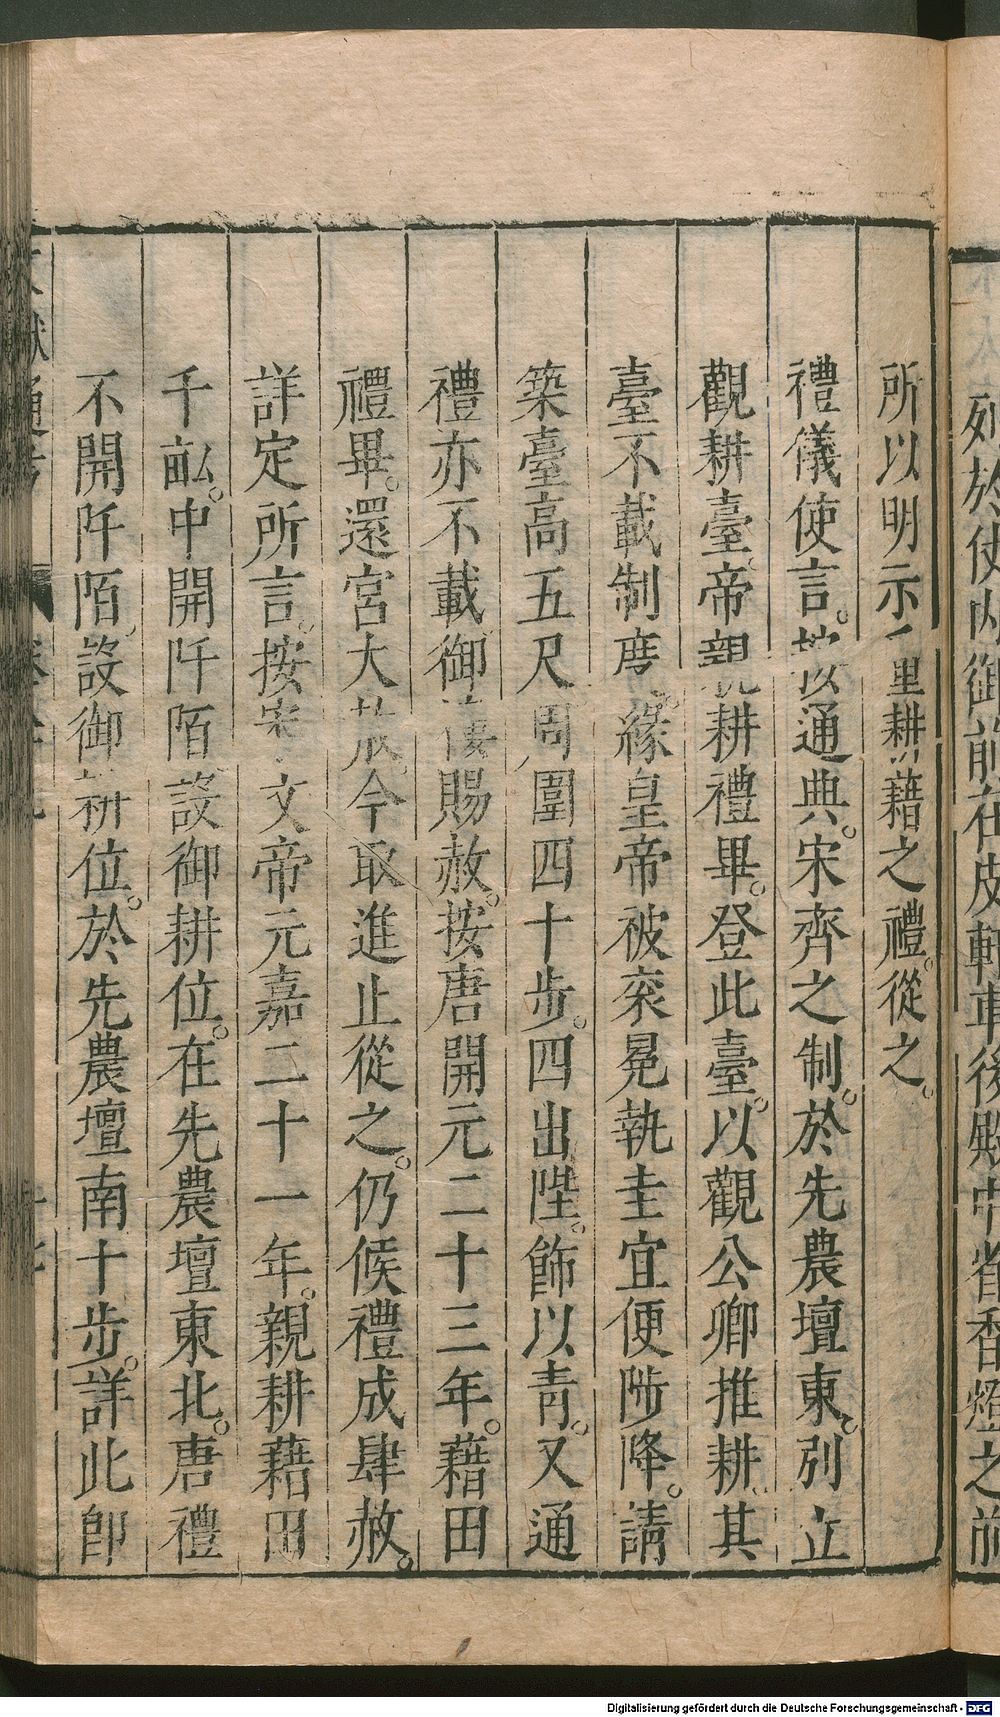 列於仗內御前在皮軒車後殿中省香燈之前
所以明示千畮耕藉之禮。從之。
禮儀使言。按通典。宋齊之制。於先農壇東。別立
觀耕臺。帝親耕禮畢。登此臺。以觀公卿推耕。其
臺不載制度。緣皇帝被衮冕執圭宜便陟降。請
築臺高五尺周圍四十步。四出陛。飾以青。又通
禮亦不載御樓賜赦。按唐開元二十三年。藉田
禮畢。還宮大赦今取進止從之。仍候禮成肆赦。
詳定所言。按宋文帝元嘉二十一年。親耕藉田
千畝。中開阡陌設御耕位。在先農壇東北。唐禮
不開阡陌設御耕位。於先農壇南十步。詳此卽
文獻通考
Digitalisierung gefördert durch die Deutsche Forschungsgemeinschaft - DFG